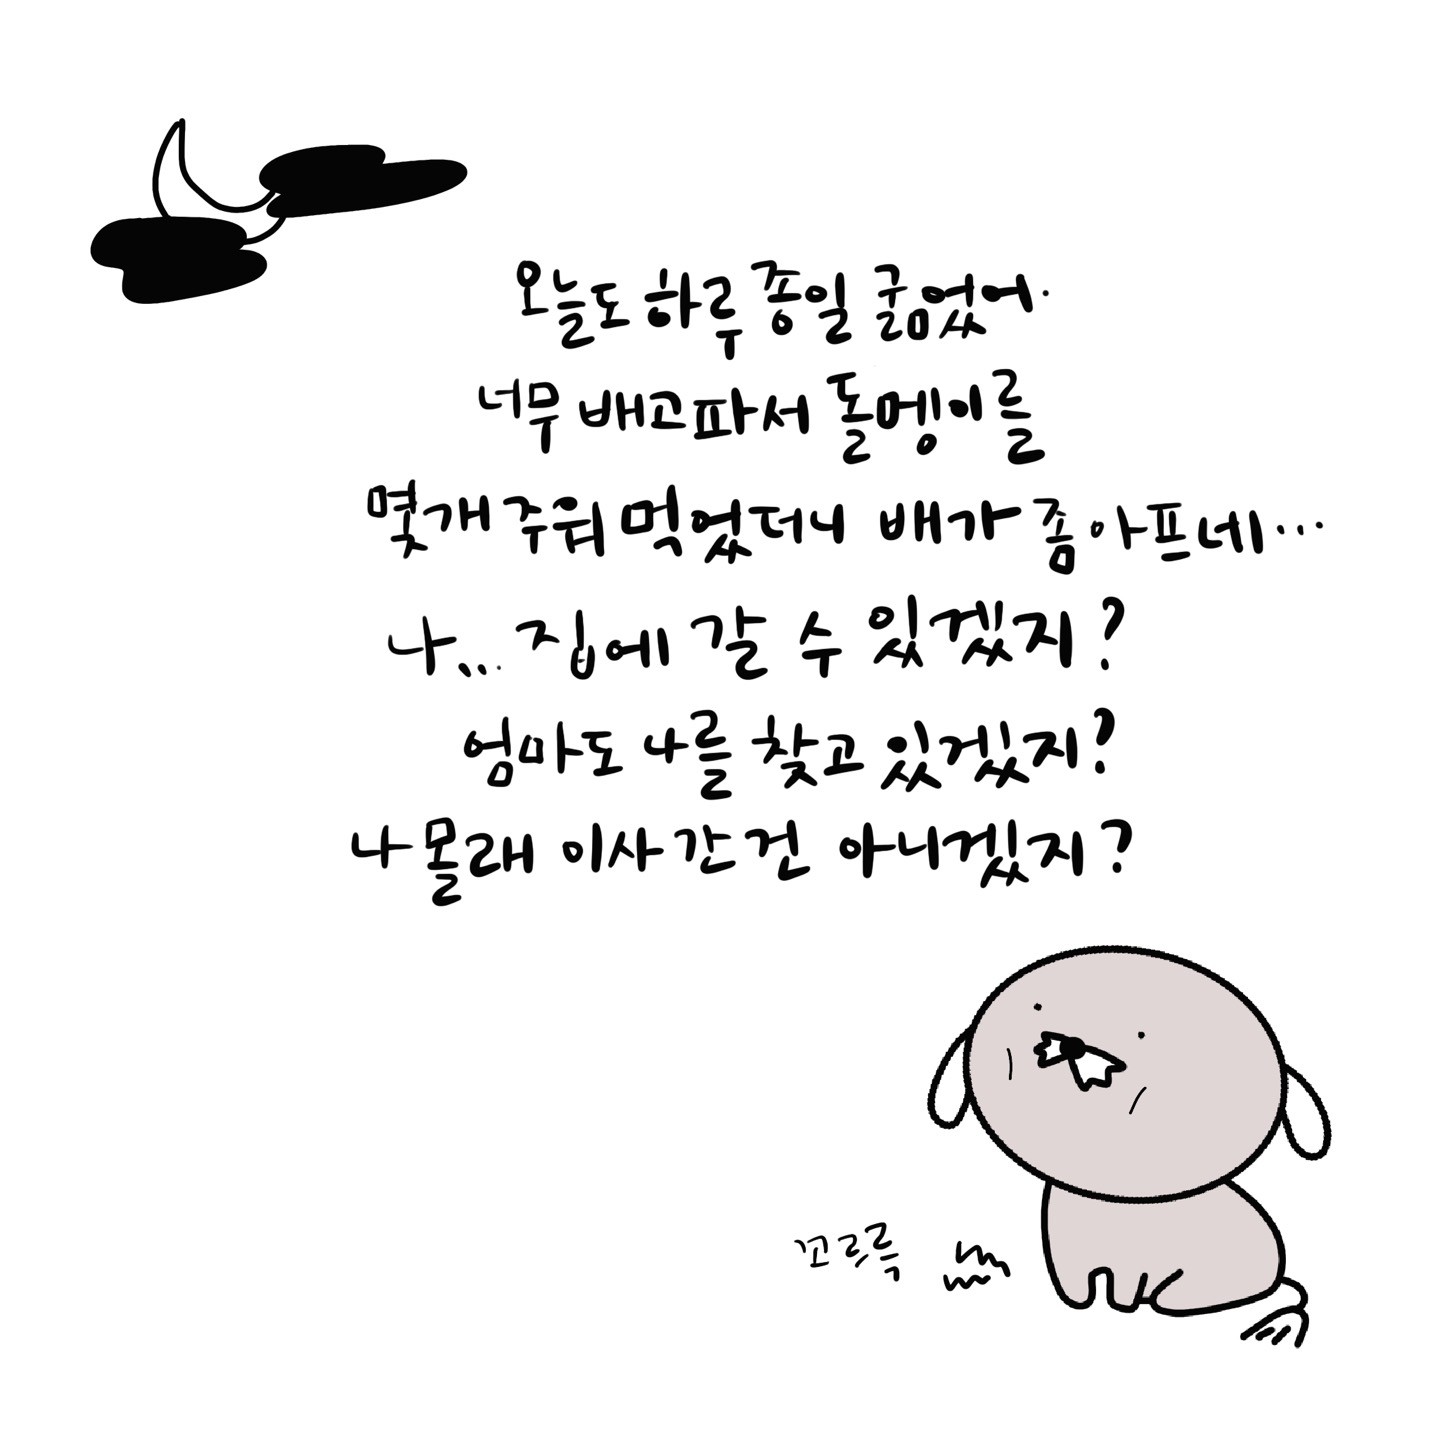 오늘도 하루 종일 굶었어.
너무 배고파서 돌멩이를
몇개 주워 먹었더니 배가 좀 아프네...
나... 집에 갈 수 있겠지?
엄마도 나를 찾고 있겠지?
나 몰래 이사 간 건 아니겠지?
꼬르륵